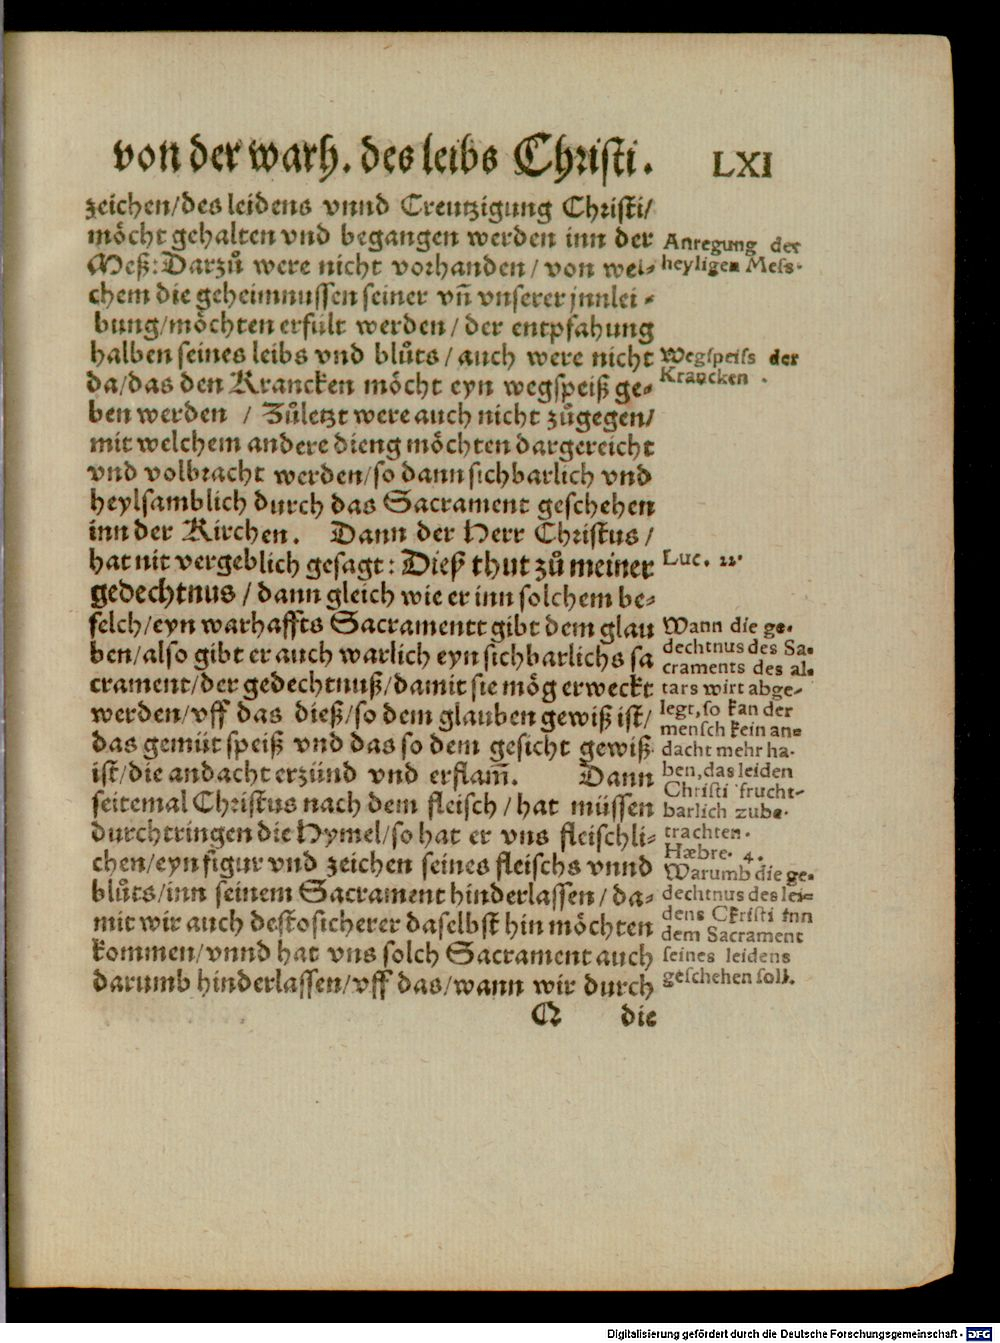 von der warh. des leibs Christi. LXI
zeichen/des leidens vnnd Creutzigung Christi/
möcht gehalten vnd begangen werden inn der
Meß: Darzů were nicht vorhanden/von wel-
chem die geheimnussen seiner vñ vnserer jnnlei-
bung/möchten erfült werden/der entpfahung
halben seines leibs vnd blůts/auch were nicht
da/das den Krancken möcht eyn wegspeiß ge-
ben werden / Zůletzt were auch nicht zůgegen/
mit welchem andere dieng möchten dargereicht
vnd volbracht werden/so dann sichbarlich vnd
heylsamblich durch das Sacrament geschehen
inn der Kirchen. Dann der Herr Christus/
hat nit vergeblich gesagt: Dieß thut zů meiner
gedechtnus/dann gleich wie er inn solchem be-
felch/eyn warhaffts Sacramentt gibt dem glau
ben/also gibt er auch warlich eyn sichbarlichs sa
crament/der gedechtnuß/damit sie mög erweckt
werden/vff das dieß/so dem glauben gewiß ist/
das gemüt speiß vnd das so dem gesicht gewiß
ist/die andacht erzünd vnd erflam̃. Dann
seitemal Christus nach dem fleisch/hat müssen
durchtringen die Hymel/so hat er vns fleischli-
chen/eyn figur vnd zeichen seines fleischs vnnd
blůts/inn seinem Sacrament hinderlassen/da-
mit wir auch destosicherer daselbst hin möchten
kommen/vnnd hat vns solch Sacrament auch
darumb hinderlassen/vff das/wann wir durch
Q die
Anregung der
heyligen Mess.
Wegspeiss der
Krancken.
Luc. 22.
Wann die ge-
dechtnus des Sa-
craments des al-
tars wirt abge-
legt, so kan der
mensch kein an-
dacht mehr ha-
ben, das leiden
Christi frucht-
barlich zube-
trachten.
Hæbre. 4.
Warumb die ge-
dechtnus des lei-
dens Christi inn
dem Sacrament
seines leidens
geschehen soll.
Digitalisierung gefördert durch die Deutsche Forschungsgemeinschaft - DFG